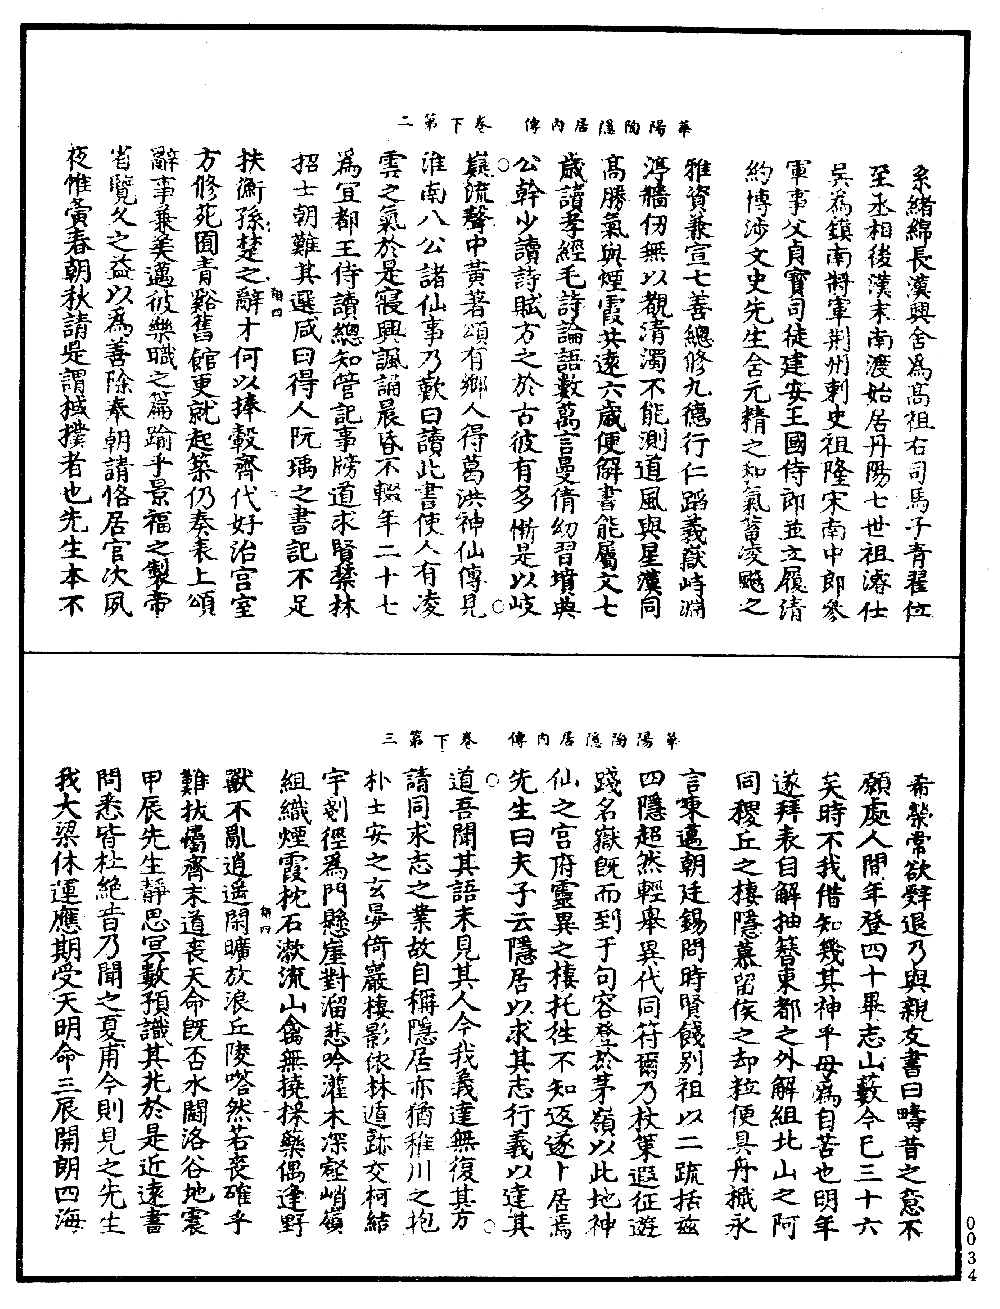 華陽陶隱居內傳　卷下第二
系緒綿長漢興舍為高祖右司馬子青翟位
至丞相後漢末南渡始居丹陽七世祖濬仕
吳為鎮南將軍荆州刺史祖隆宋南中郎參
軍事父貞寶司徒建安王國侍郎並立履清
約博涉文史先生含元精之和氣蓄凌颷之
雅資兼宣七善總修九德行仁蹈義嶽峙淵
渟牆仞無以觀清濁不能測道風與星漢同
高勝氣與煙霞共遠六歲便解書能屬文七
歲讀孝經毛詩論語數萬言曼倩幼習墳典
公幹少讀詩賦方之於古彼有多慚是以岐
嶷流聲中黃著頌有鄉人得葛洪神仙傳見
淮南八公諸仙事乃歎曰讀此書使人有凌
雲之氣於是寢興諷誦晨昏不輟年二十七
為宜都王侍讀總知管記事牓道求賢禁林
招士朝難其選咸曰得人阮瑀之書記不足
扶衡孫楚之辭才何以捧轂齊代好治宮室
方修苑囿青谿舊館更就起築仍奏表上頌
辭事兼美邁彼樂職之篇踰乎景福之製帝
省覽久之益以為善除奉朝請恪居官次夙
夜惟夤春朝秋請是謂棫樸者也先生本不
華陽陶隱居內傳　卷下第三
希榮常欲辭退乃與親友書曰疇昔之意不
願處人間年登四十畢志山藪今已三十六
矣時不我借知幾其神乎毋為自苦也明年
遂拜表自解抽簪東都之外解組北山之阿
同稷丘之棲隱慕留侯之却粒便具舟檝永
言東邁朝廷錫問時賢餞別祖以二疏括茲
四隱超然輕舉異代同符爾乃杖策遐征遊
踐名嶽既而到于句容登於茅嶺以此地神
仙之宮府靈異之棲托往不知返遂卜居焉
先生曰夫子云隱居以求其志行義以達其
道吾聞其語未見其人今我義達無復其方
請同求志之業故自稱隱居亦猶稚川之抱
朴士安之玄晏倚巖棲影依林遁跡交柯結
宇刻徑為門懸崖對溜悲吟灌木深壑峭嶺
組織煙霞枕石漱流山禽無撓採藥偶逢野
獸不亂逍遥閑曠放浪丘陵嗒然若喪確乎
難拔屬齊末道喪天命既否水鬭洛谷地震
甲辰先生靜思冥數預識其兆於是近遠書
問悉皆杜絕昔乃聞之夏甫今則見之先生
我大梁休運應期受天明命三辰開朗四海
0034